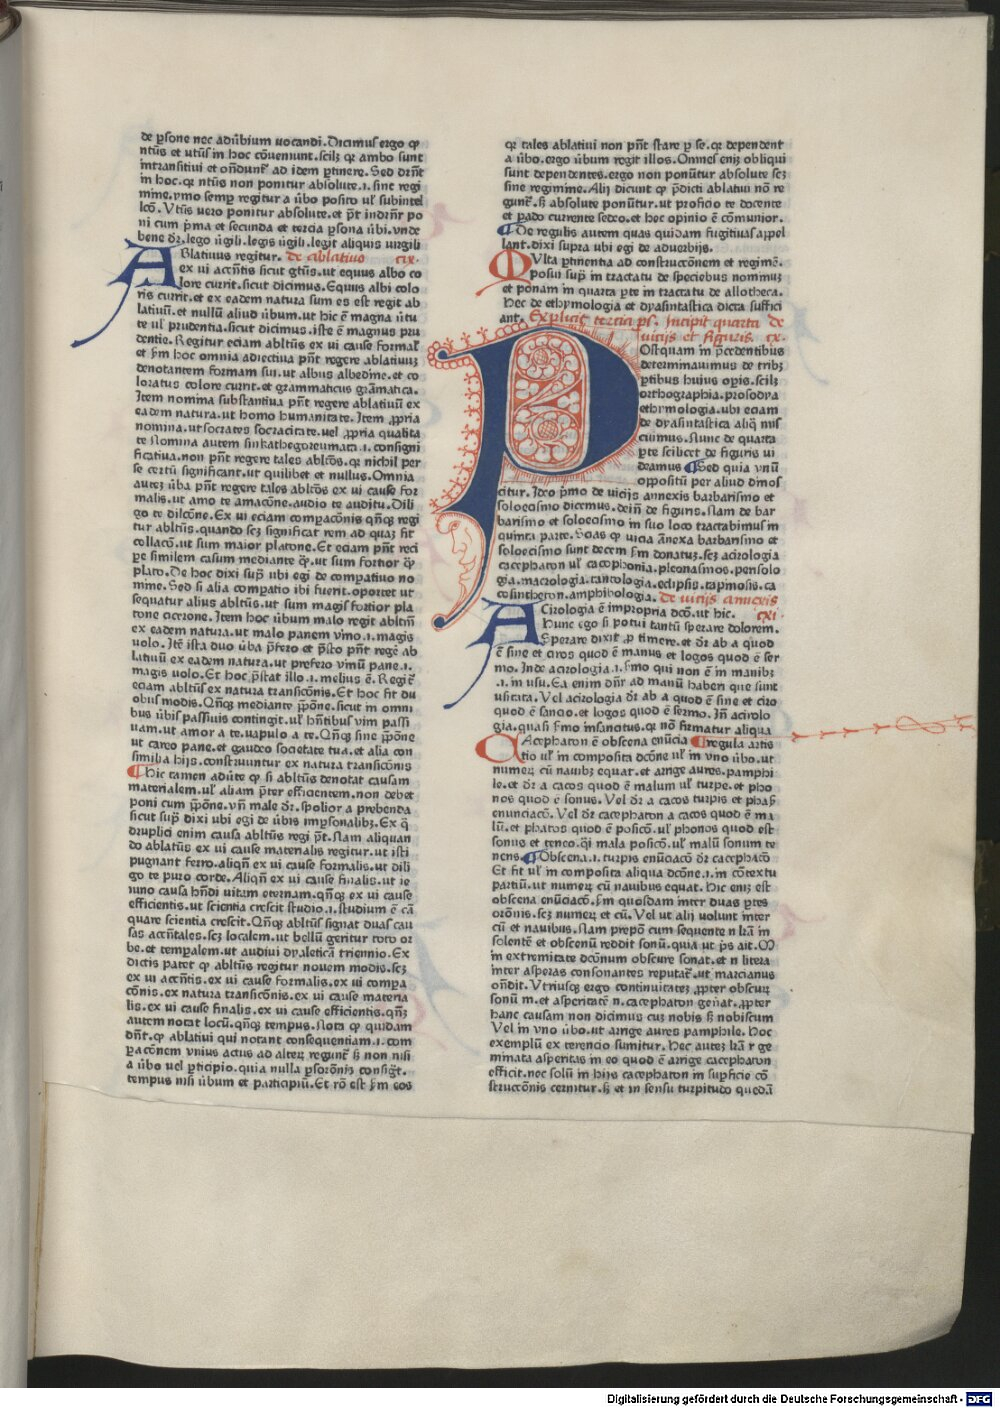 de ꝑsone nec adũbium uocandi.Dicimus ergo ꝙ
ntũs et utũs in hoc cõueniunt.scilꝫ qꝛ ambo sunt
intransitiui et oñdunt᷑ ad idem ꝑtinere.Sed drñt
in hoc.qꝛ ntũs non ponitur absolute.i.sine regi
mine.ymo semꝑ regitur a ũbo posito ul᷑ subintel
lcõ.Vtũs uero ponitur absolute.et põt indrñr po
ni cum pͥma et secunda et tercia ꝑsona ũbi.vnde
bene dr̃.lego ũgili.legis ũgili.legit aliquis uirgili
ABlatiuus regitur. De ablatiuo cix.
ex ui accñtis sicut gtũs.ut equus albo co
lore currit.sicut dicimus.Equus albi colo
ris currit.et ex eadem natura sum es est regit ab
latiuũ.et nullũ aliud ũbum.ut hic ẽ magna ũtu
te ul᷑ prudentia.sicut dicimus.iste ẽ magnus pru
dentie.Regitur eciam abltũs ex ui cause formal᷑
et sᷤm hoc omnia adiectiua pñt regere ablatiuuꝫ
denotantem formam sui.ut albus albedine.et co
loratus colore currit.et grammaticus grãmatica.
Item nomina substantiua pñt regere ablatiuũ ex
eadem natura.ut homo humanitate.Item ꝓpria
nomina.ut socrates socracitate.uel ꝓpria qualita
te Nomina autem sinkathegoreumata.i.consigni
ficatiua.non pñt regere tales abltõs.qꝛ nichil per
se certũ significant.ut quilibet et nullus.Omnia
auteꝫ ũba pñt regere tales abltõs ex ui cause for
malis.ut amo te amacõne.audio te auditu.Dili
go te dilcõne.Ex ui eciam compacõnis qñqꝫ regi
tur abltũs.quando scꝫ significat rem ad quaꝫ fit
collacõ.ut sum maior platone.Et eciam põt reci
pe similem casum mediante ꝙ̃.ut sum fortior ꝙ̃
plato.De hoc dixi supͣ ubi egi de compatiuo no
mine.Sed si alia compatio ibi fuerit.oportet ut
sequatur alius abltũs.ut sum magis fortior pla
tone cicerone.Item hoc ũbum malo regit abltũ
ex eadem natura.ut malo panem vino.i.magis
uolo.Itẽ ista duo ũba p̃fero et p̃sto pñt regẽ ab
latiuũ ex eadem natura.ut prefero vinũ pane.i.
magis uolo.Et hoc p̃stat illo.i.melius ẽ.Regit᷑
eciam abltũs ex natura transicõnis.Et hoc fit du
obus modis.Qñqꝫ mediante p̃põne.sicut in omni
bus ũbis passiuis contingit.ul᷑ hñtibus vim passi
uam.ut amor a te.uapulo a te.Qñqꝫ sine p̃põne
ut careo pane.et gaudeo societate tua.et alia con
similia hijs.construuntur ex natura transicõnis
¶Hic tamen adũte ꝙ si abltũs denotat causam
materialem.ul᷑ aliam p̃ter efficientem.non debet
poni cum p̃põne.vñ male dr̃.spolior a prebenda
sicut supͣ dixi ubi egi de ũbis imꝑsonalibꝫ.Ex q̃
druplici enim causa abltũs regi põt.Nam aliquan
do ablatũs ex ui cause materialis regitur.ut isti
pugnant ferro.aliqñ ex ui cause formalis.ut dili
go te puro corde.Aliqñ ex ui cause finalis.ut ie
iuno causa hñdi uitam eternam.qñqꝫ ex ui cause
efficientis.ut scientia crescit studio.i.studium ẽ cã
quare scientia crescit.Qñqꝫ abltũs signat duas cau
sas accñtales.scꝫ localem.ut bellũ geritur toto or
be.et temꝑalem.ut audiui dyaleticã triennio.Ex
dictis patet ꝙ abltũs regitur nouem modis.scꝫ
ex ui accñtis.ex ui cause formalis.ex ui compa
cõnis.ex natura transicõnis.ex ui cause materia
lis.ex ui cause finalis.ex ui cause efficientis.qñꝫ
autem notat locũ.qñqꝫ tempus.Nota ꝙ quidam
dñt.ꝙ ablatiui qui notant consequentiam.i.com
ꝑacõnem vnius actus ad alteꝝ regunt᷑ sꝫ non nisi
a ũbo uel ꝑticipio.quia nulla ꝑs orõnis consigt᷑.
tempus nisi ũbum et participiũ.Et rõ est sᷤm eos
qꝛ tales ablatiui non pñt stare ꝑ se.qꝛ dependent
a ũbo.ergo ũbum regit illos.Omnes eniꝫ obliqui
sunt dependentes.ergo non ponũtur absolute scꝫ
sine regimine.Alij dicunt ꝙ p̃dicti ablatiui nõ re
gunt᷑.sꝫ absolute ponũtur.ut proficio te docente
et pado currente sedeo.et hec opinio ẽ cõmunior.
¶De regulis autem quas quidam fugitiuas appel
lant.dixi supra ubi egi de aduerbijs.
MVlta ꝑtinentia ad construccõnem et regimẽ.
posui supͣ in tractatu de speciebus nominuꝫ
et ponam in quarta ꝑte in tractatu de allotheca.
Hec de ethymologia et dyasintastica dicta suffici
ant. Explicit tercia ps. Incipit quarta de
uicijs et figuris. cx.
POstquam in p̃cedentibus
determinauimus de tribꝫ
ꝑtibus huius oꝑis.scilꝫ
orthographia.prosodya
ethymologia.ubi eciam
de dyasintastica aliq̃ nis
cuimus.Nunc de quarta
ꝑte scilicet de figuris ui
deamus ¶Sed quia vnũ
oppositũ per aliud dinos
citur.Ideo pͥmo de vicijs annexis barbarismo et
soloecismo dicemus.dein̄ de figuris.Nam de bar
barismo et soloecismo in suo loco tractabimus in
quinta parte.Scias ꝙ uicia ãnexa barbarismo et
soloecismo sunt decem sᷤm donatuꝫ.scꝫ acirologia
cacephaton ul᷑ cacophonia.pleonasmos.perisolo
gia.macrologia.tautologia.eclipsis.tapinosis.ca
cosintheton.amphibologia. De uicijs annexis
ACirologia ẽ impropria dcõ.ut hic. cxi.
Hunc ego si potui tantũ sperare dolorem.
Sperare dixit ꝓ timere.et dr̃ ab a quod
ẽ sine et ciros quod ẽ manus et logos quod ẽ ser
mo.Inde acirologia.i.sᷤmo qui non ẽ in manibꝫ
.i.in usu.Ea enim dñr ad manũ haberi que sunt
usitata.Vel acirologia dr̃ ab a quod ẽ sine et ciro
quod ẽ sancio.et logos quod ẽ sermo.Iñ acirolo
gia.quasi sᷤmo insancitus.qꝛ nõ firmatur aliqua
CAcephaton ẽ obscena enũcia ¶regula artis
tio ul᷑ in composita dcõne ul᷑ in vno ũbo.ut
numeꝝ cũ nauibꝫ equat.et arrige aures.pamphi
le.et dr̃ a cacos quod ẽ malum ul᷑ turpe.et pho
nos quod ẽ sonus.Vel dr̃ a cacos turpis et phaſꝫ
enunciacõ.Vel dr̃ cacephaton a cacos quod ẽ ma
lũ.et phatos quod ẽ posicõ.ul᷑ phonos quod est
sonus et teneo.q̇i mala posicõ.ul᷑ malũ sonum te
nens.¶Obscena.i.turpis enũciacõ dr̃ cacephatõ
Et fit ul᷑ in composita aliqua dcõne.i.in cõtextu
partiũ.ut numeꝝ cũ nauibus equat.hic eniꝫ est
obscena enũciacõ.sᷤm quosdam inter duas ꝑtes
orõnis.scꝫ numeꝝ et cũ.Vel ut alij uolunt inter
cũ et nauibus.Nam prepõ cum sequente n lr̃a in
solentẽ et obscenũ reddit sonũ.quia ut p̃s ait.M
in extremitate dcõnum obscure sonat.et n litera
inter asperas consonantes reputat᷑.ut marcianus
oñdit.Vtriusqꝫ ergo continuitateꝫ ꝓpter obscuꝝ
sonũ m.et asperitatẽ n.cacephaton geñat.ꝓpter
hanc causam non dicimus cuꝫ nobis sꝫ nobiscum
Vel in vno ũbo.ut arrige aures pamphile.Hoc
exemplũ ex terencio sumitur.Hec auteꝫ lr̃a r ge
minata asperitas in eo quod ẽ arrige cacephaton
efficit.nec solũ in hijs cacephaton in supficie cõ
struccõnis cernitur.sꝫ et in sensu turpitudo quedã
Digitalisierung gefördert durch die Deutsche Forschungsgemeinschaft - DFG